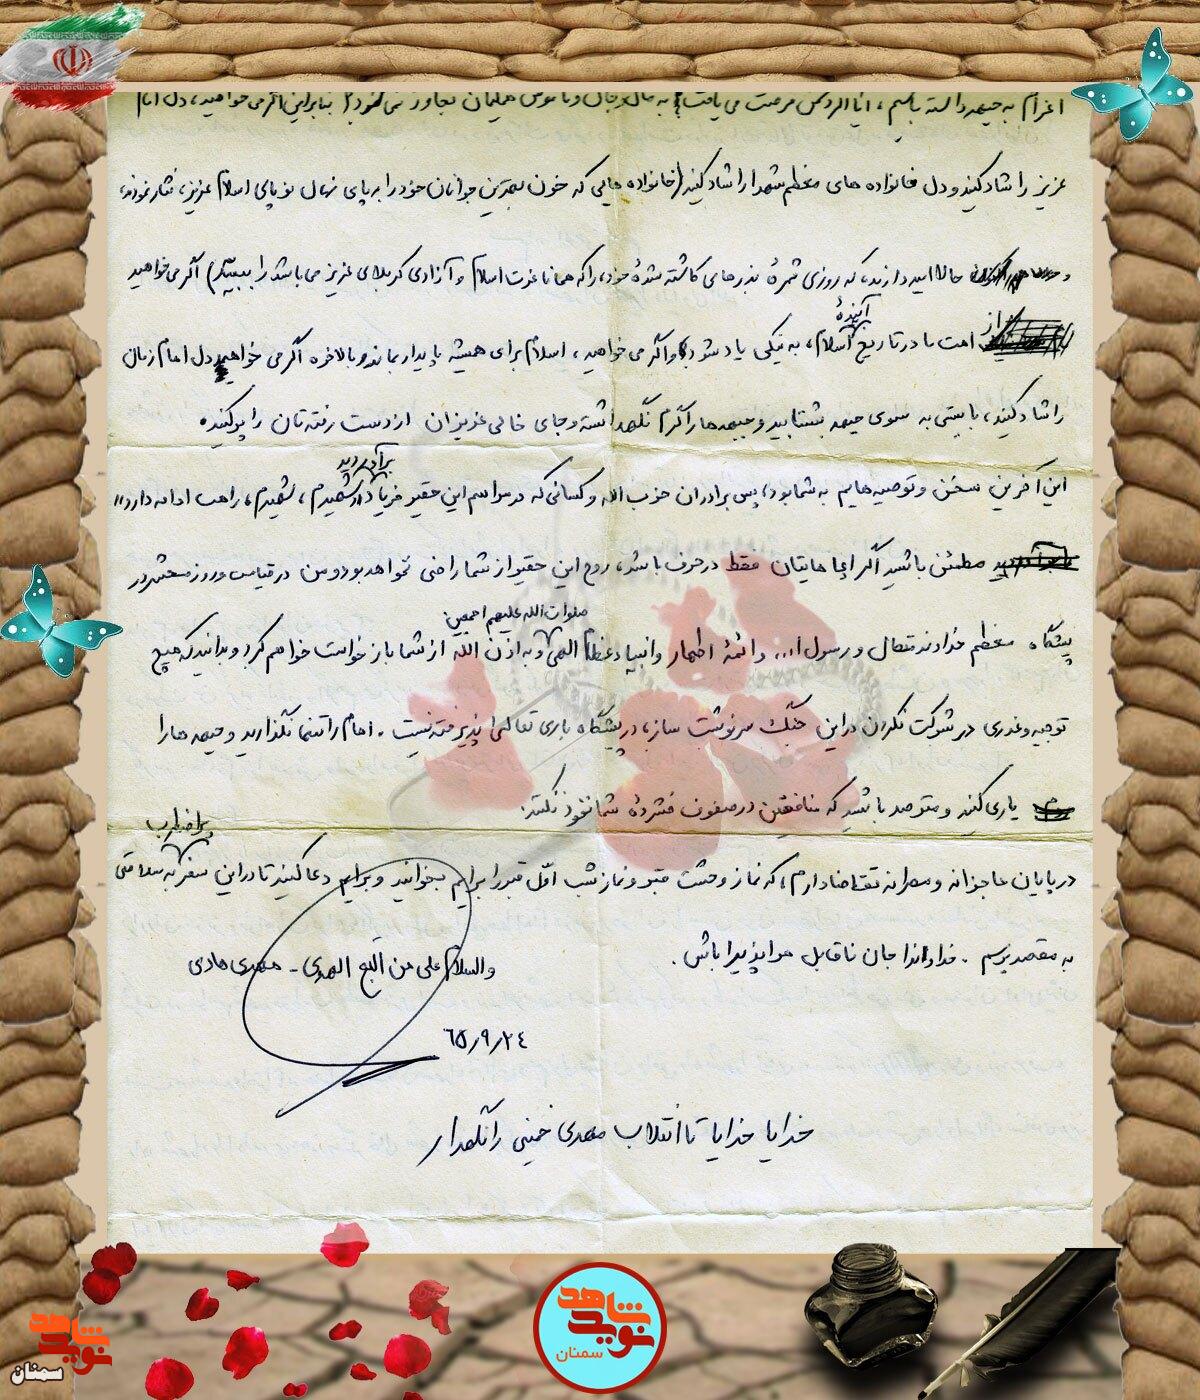 اعزام به جبهه داشته باشیم، و به مال و جان و ناموس تجاوز بنابراین اگر می‌خواهید، دل امام
عزیز را شاد کنید و دل خانواده های معظم شهدا را شاد کنید (خانواده هایی که خون بهترین جوانان خود را به پای نهال نو پای اسلام عزیز، نثار نمودند،
و حالا امیدوارند، که روزی ثمرهٔ بذرهای کاشته شدهٔ خود، را که همانا عزت اسلام و آزادی کربلای عزیز می باشد را ببینند) اگر می خواهید
از امت ما در تاریخ آیندهٔ اسلام، به نیکی یاد شود و اگر می خواهید، اسلام برای همیشه پایدار بماند و بالاخره اگر می خواهید دل امام زمان
را شاد کنید، بایستی به سوی جبهه بشتابید و جبهه ها را گرم نگهداشته و جای خالی عزیزان از دست رفته تان را پر کنید.
این آخرین سخن و توصیه هایم به شما بود، پس برادران حزب الله و کسانی که در مراسم این حقیر فریاد برآوردید «شهیدم، شهیدم، راهت ادامه دارد»
مطمئن باشید اگر فقط در حرف باشد، روح این حقیر از شما راضی نخواهد بود و من در قیامت و روز محشر در
پیشگاه معظم خداوند متعال و رسول ا... و ائمهٔ اطهار و انبیاء عظام الهی صلوات الله علیهم اجمعین و به اذن الله از شما بازخواست خواهم کرد و بدانید که هیچ
توجیه و عذری در شرکت نکردن در این جنگ سرنوشت ساز، در پیشگاه باری تعالی پذیرفته نیست. امام را تنها نگذارید و جبهه ها را
یاری کنید و مترصد باشید که منافقین در صفوف فشردهٔ شما نفوذ نکنند.
در پایان عاجزانه و مصرانه تقاضا دارم، که نماز وحشت قبر و نماز شب اوّل قبر را برایم بخوانید و برایم دعا کنید تا در این سفر پر اضطراب به سلامتی
به مقصد برسم. خداوندا جان ناقابل مرا پذیرا باش.
والسلام علی من اتبع الهدی - مهدی هادی
۶۵/۹/۲۴
خدایا خدایا تا انقلاب مهدی خمینی را نگهدار
نوید شاهد
سمنان
نوید شاهد
سمنان